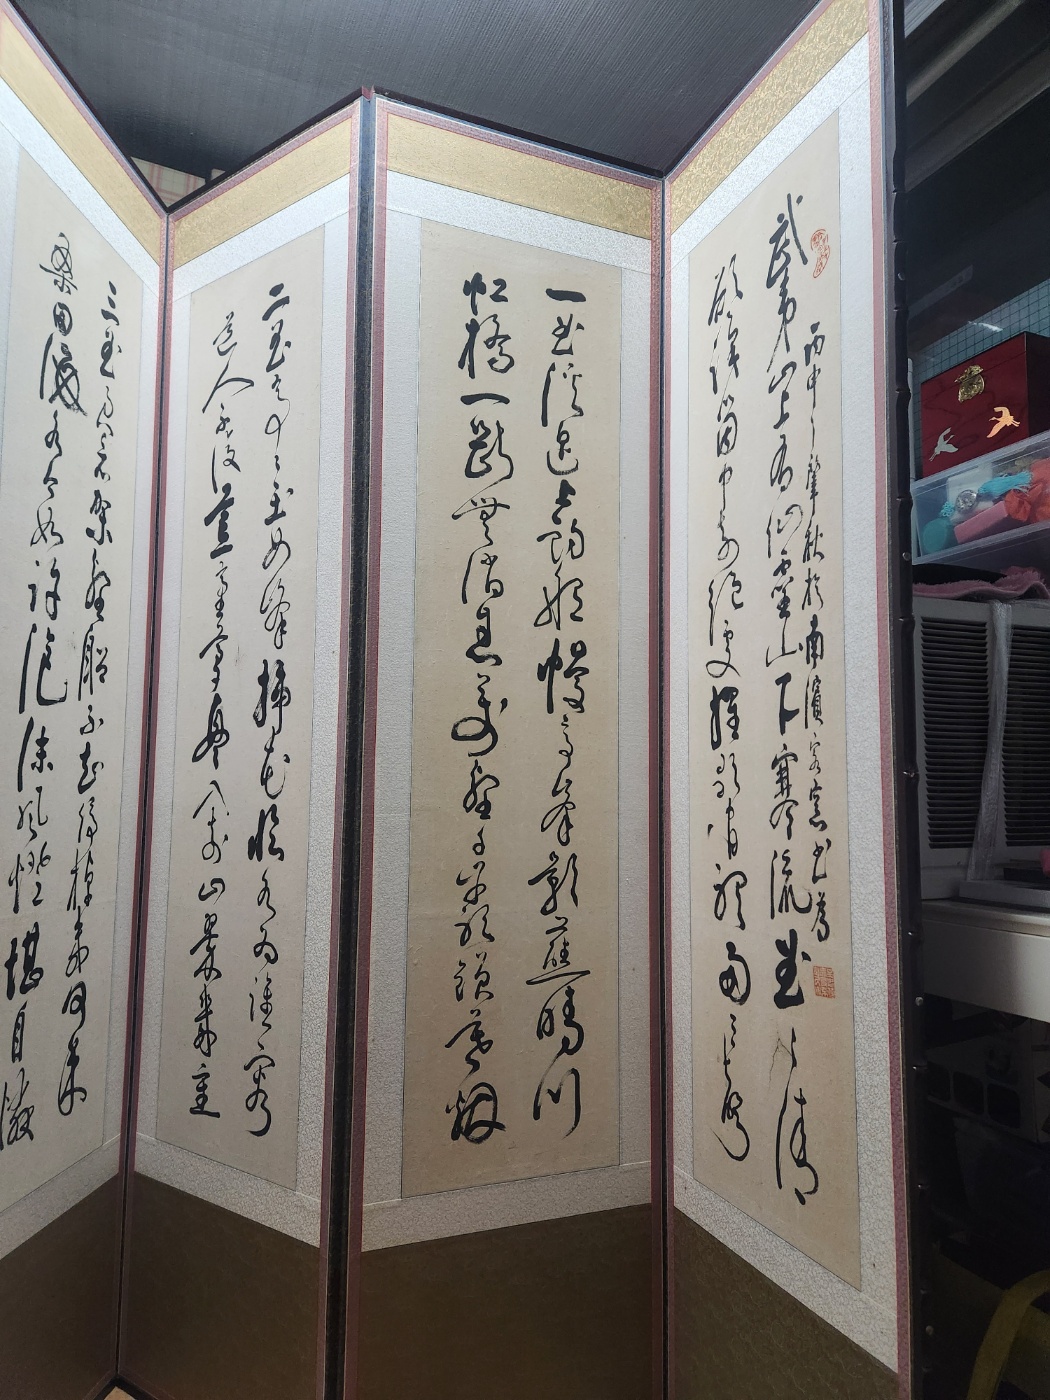 丙申之肇秋於南濱寓窓
武夷山上有仙靈山下寒流曲〻清
欲識箇中奇絶處櫂歌閒聽兩三聲
一曲溪邊上釣船幔亭峰影蘸晴川
虹橋一斷無消息萬壑千巖鎖暮烟
二曲亭〻玉女峰插花臨水為誰容
道人不復荒臺夢興入前山翠幾重
三曲君看架壑船不知停棹幾何年
桑田海水今如許泡沫風燈堪自憐